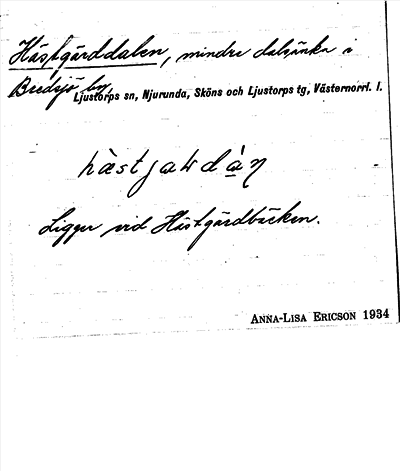 Hästgårddalen, mindre dalsänka i
Bredsjö by
Ljustorps sn, Njurunda, Sköns och Ljustorps tg, Västernorrl. l.
Ligger vid Hästgårdbäcken.
ANNA-LISA ERICSON 1934